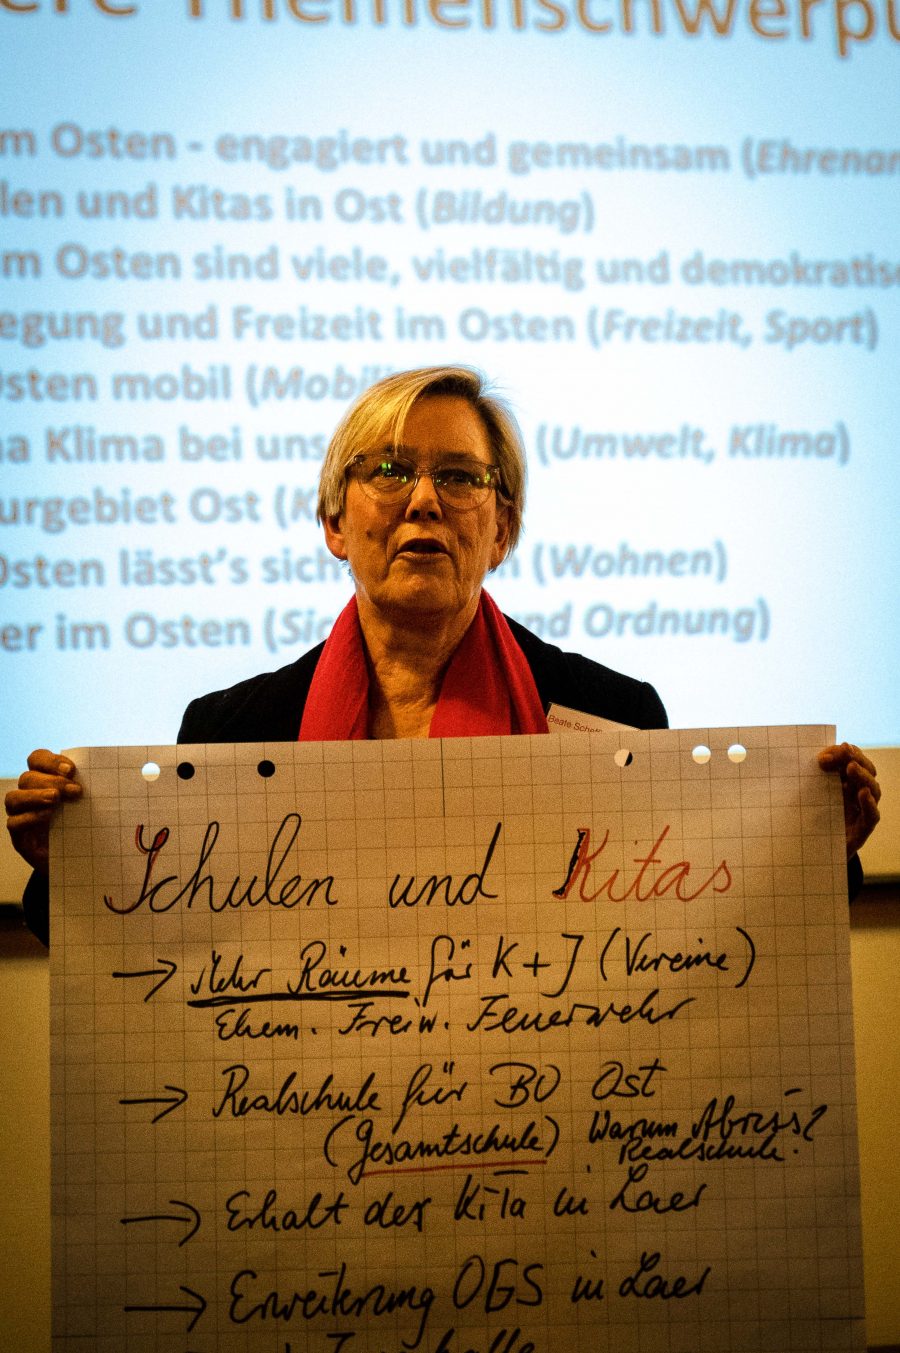 ere Themenschwerpu
m Osten - engagiert und gemeinsam (Ehrenam
len und Kitas in Ost (Bildung)
m Osten sind viele, vielfältig und demokratisc
egung und Freizeit im Osten (Freizeit, Sport)
Osten mobil (Mobili
na Klima bei uns (Umwelt, Klima)
urgebiet Ost (K
Osten lässt's sich n (Wohnen)
er im Osten (Sic nd Ordnung)
Beate Scheff
Schulen und Kitas
→ Mehr Räume für K + J (Vereine)
Ehem. Freiw. Feuerwehr
→ Realschule für BO Ost
(Gesamtschule) Warum Abriss
Realschule?
→ Erhalt der KiTa in Laer
→ Erweiterung OGS in Laer